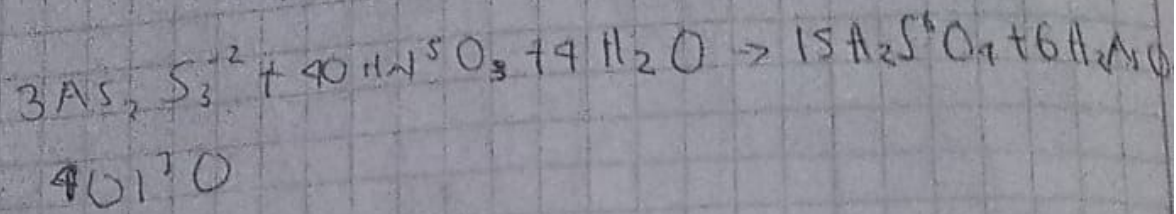 3As₂S₃⁻² + 40HN⁵O₃ + 4H₂O → 15H₂S⁶O₄ + 6H₃AsO
40N²O